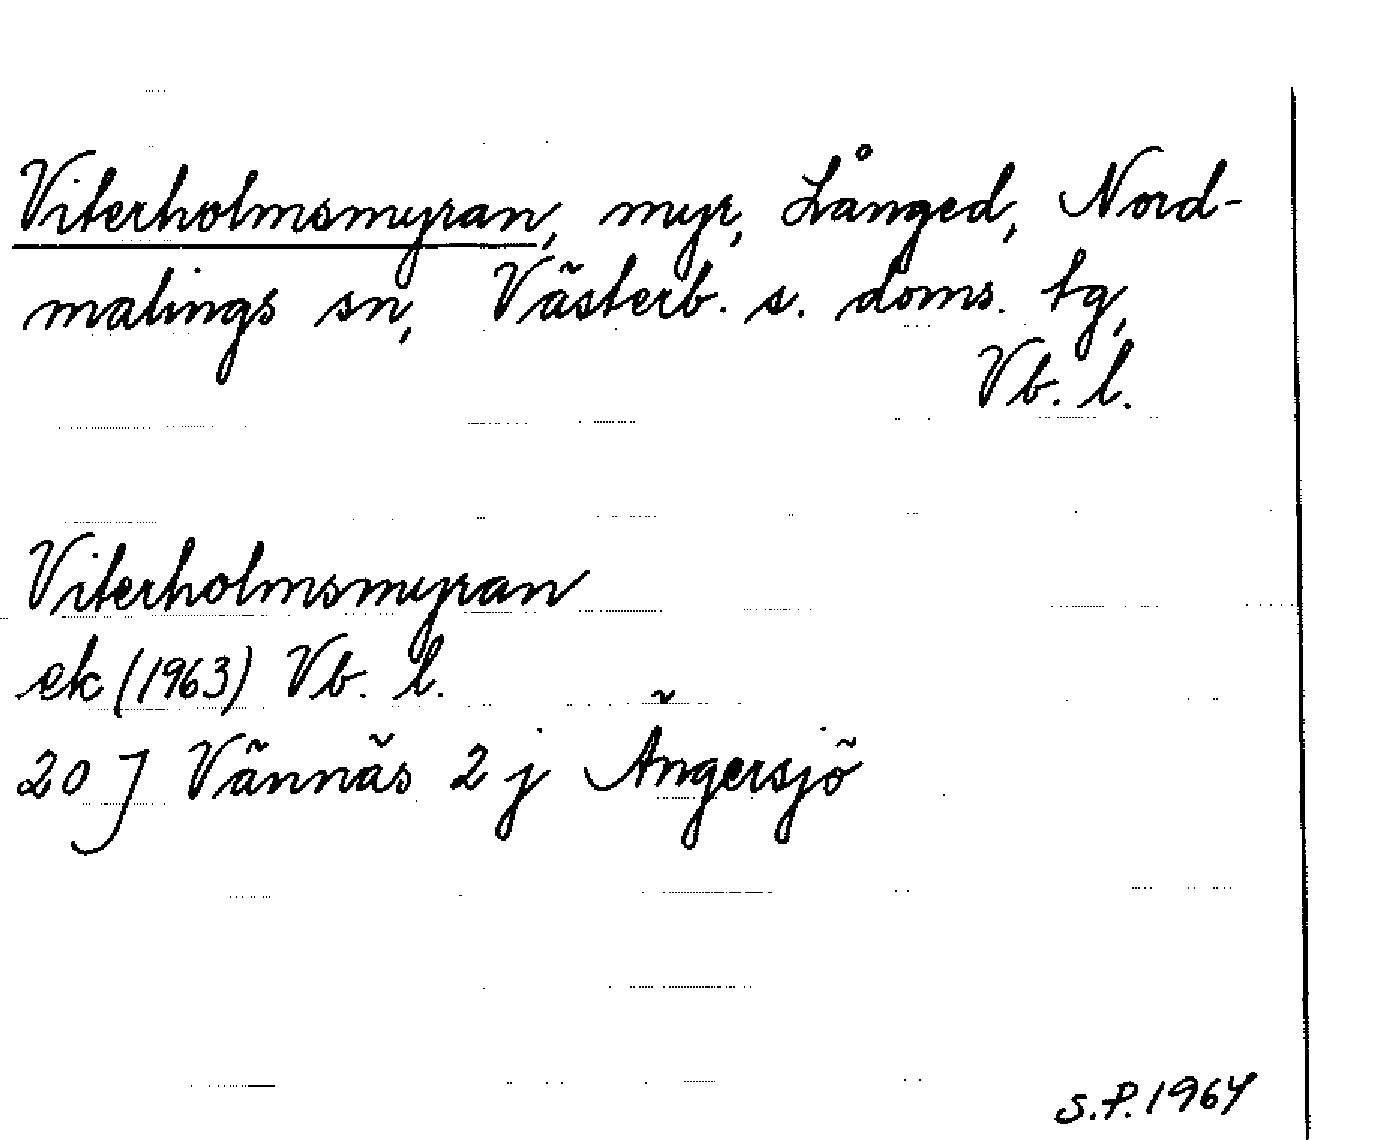 Viterholmsmyran, myr, Långed, Nord-
malings sn, Västerb. s. doms. tg,
Vb. l.
Viterholmsmyran
ek (1963) Vb. l.
20 J Vännäs 2 j Ängersjö
S.P. 1964